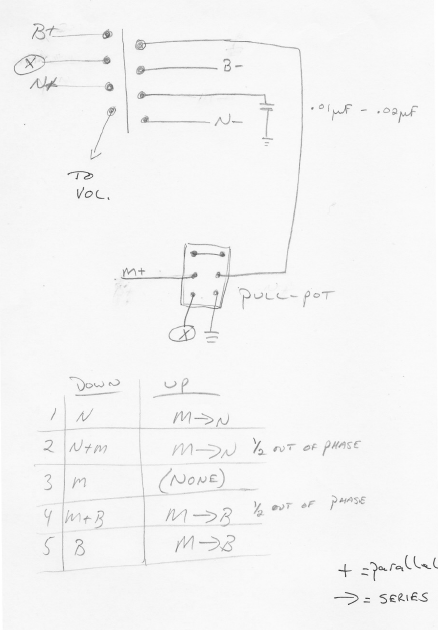 B+
X
N+
B-
N-
.01µF - .02µF
TO
VOL.
M+
PULL-POT
X
DOWN UP
1 N M→N
2 N+M M→N 1/2 OUT OF PHASE
3 M (NONE)
4 M+B M→B 1/2 OUT OF PHASE
5 B M→B
+ = parallel
→ = SERIES